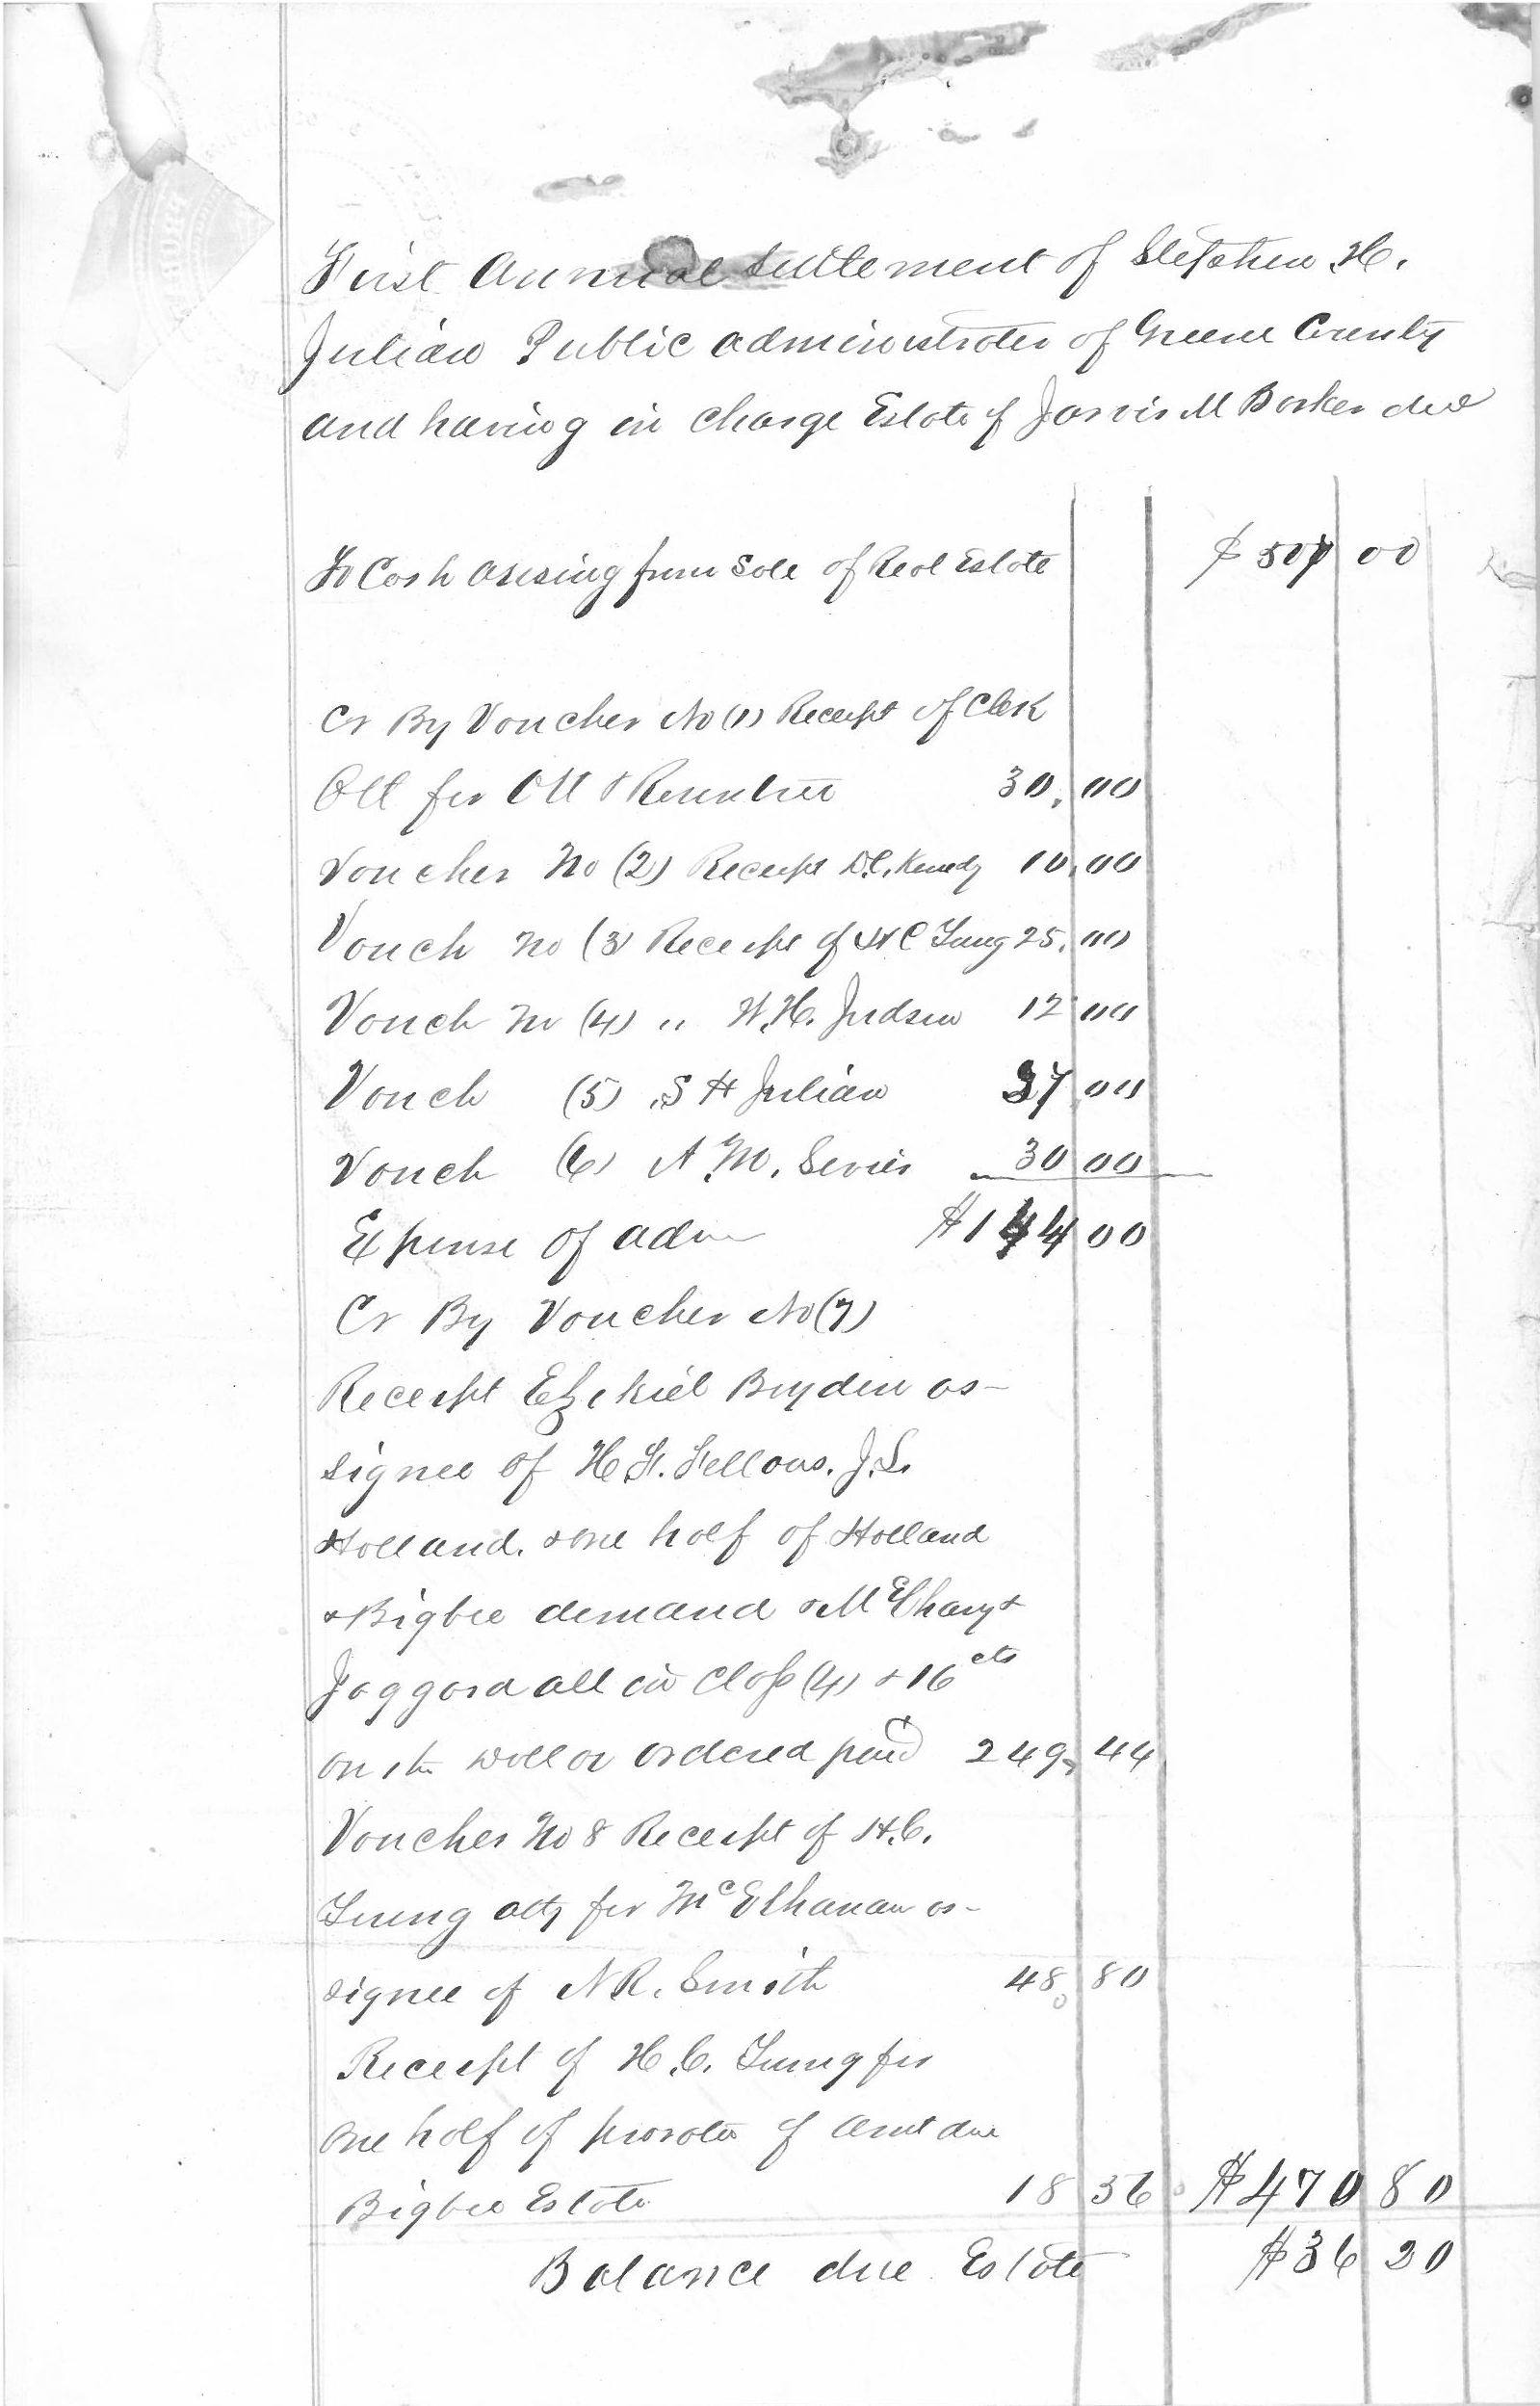 First Annual Settlement of Stephen H.
Julian Public administrator of Greene County
and having in charge Estate of Jarvis M Barker decd
To Cash arising from Sale of Real Estate $507 00
Cr By Voucher No (1) Receipt of Clerk
All for Ott & Rountree 30.00
Voucher No (2) Receipt D.C. Kenedy 10.00
Vouch No (3) Receipt of H C Young 25.00
Vouch No (4) " W.H. Judson 12 00
Vouch (5) S H Julian 37 00
Vouch (6) A. M. Sevier 30 00
Expense of adm $144 00
Cr By Voucher No (7)
Receipt Ezekiel Boyden as-
signee of H.F. Fellows. J.L.
Holland. & one half of Holland
& Bigbee demand & McElhany &
Jaggard all in Class (4) & 16 cts
on the dollar ordered paid 249.44
Voucher No 8 Receipt of H.C.
Young atty for McElhanan as-
signee of N R. Smith 48.80
Receipt of H.C. Young for
one half of prorata of amt due
Bigbee Estate 18 36 $470 80
Balance due Estate $36 20